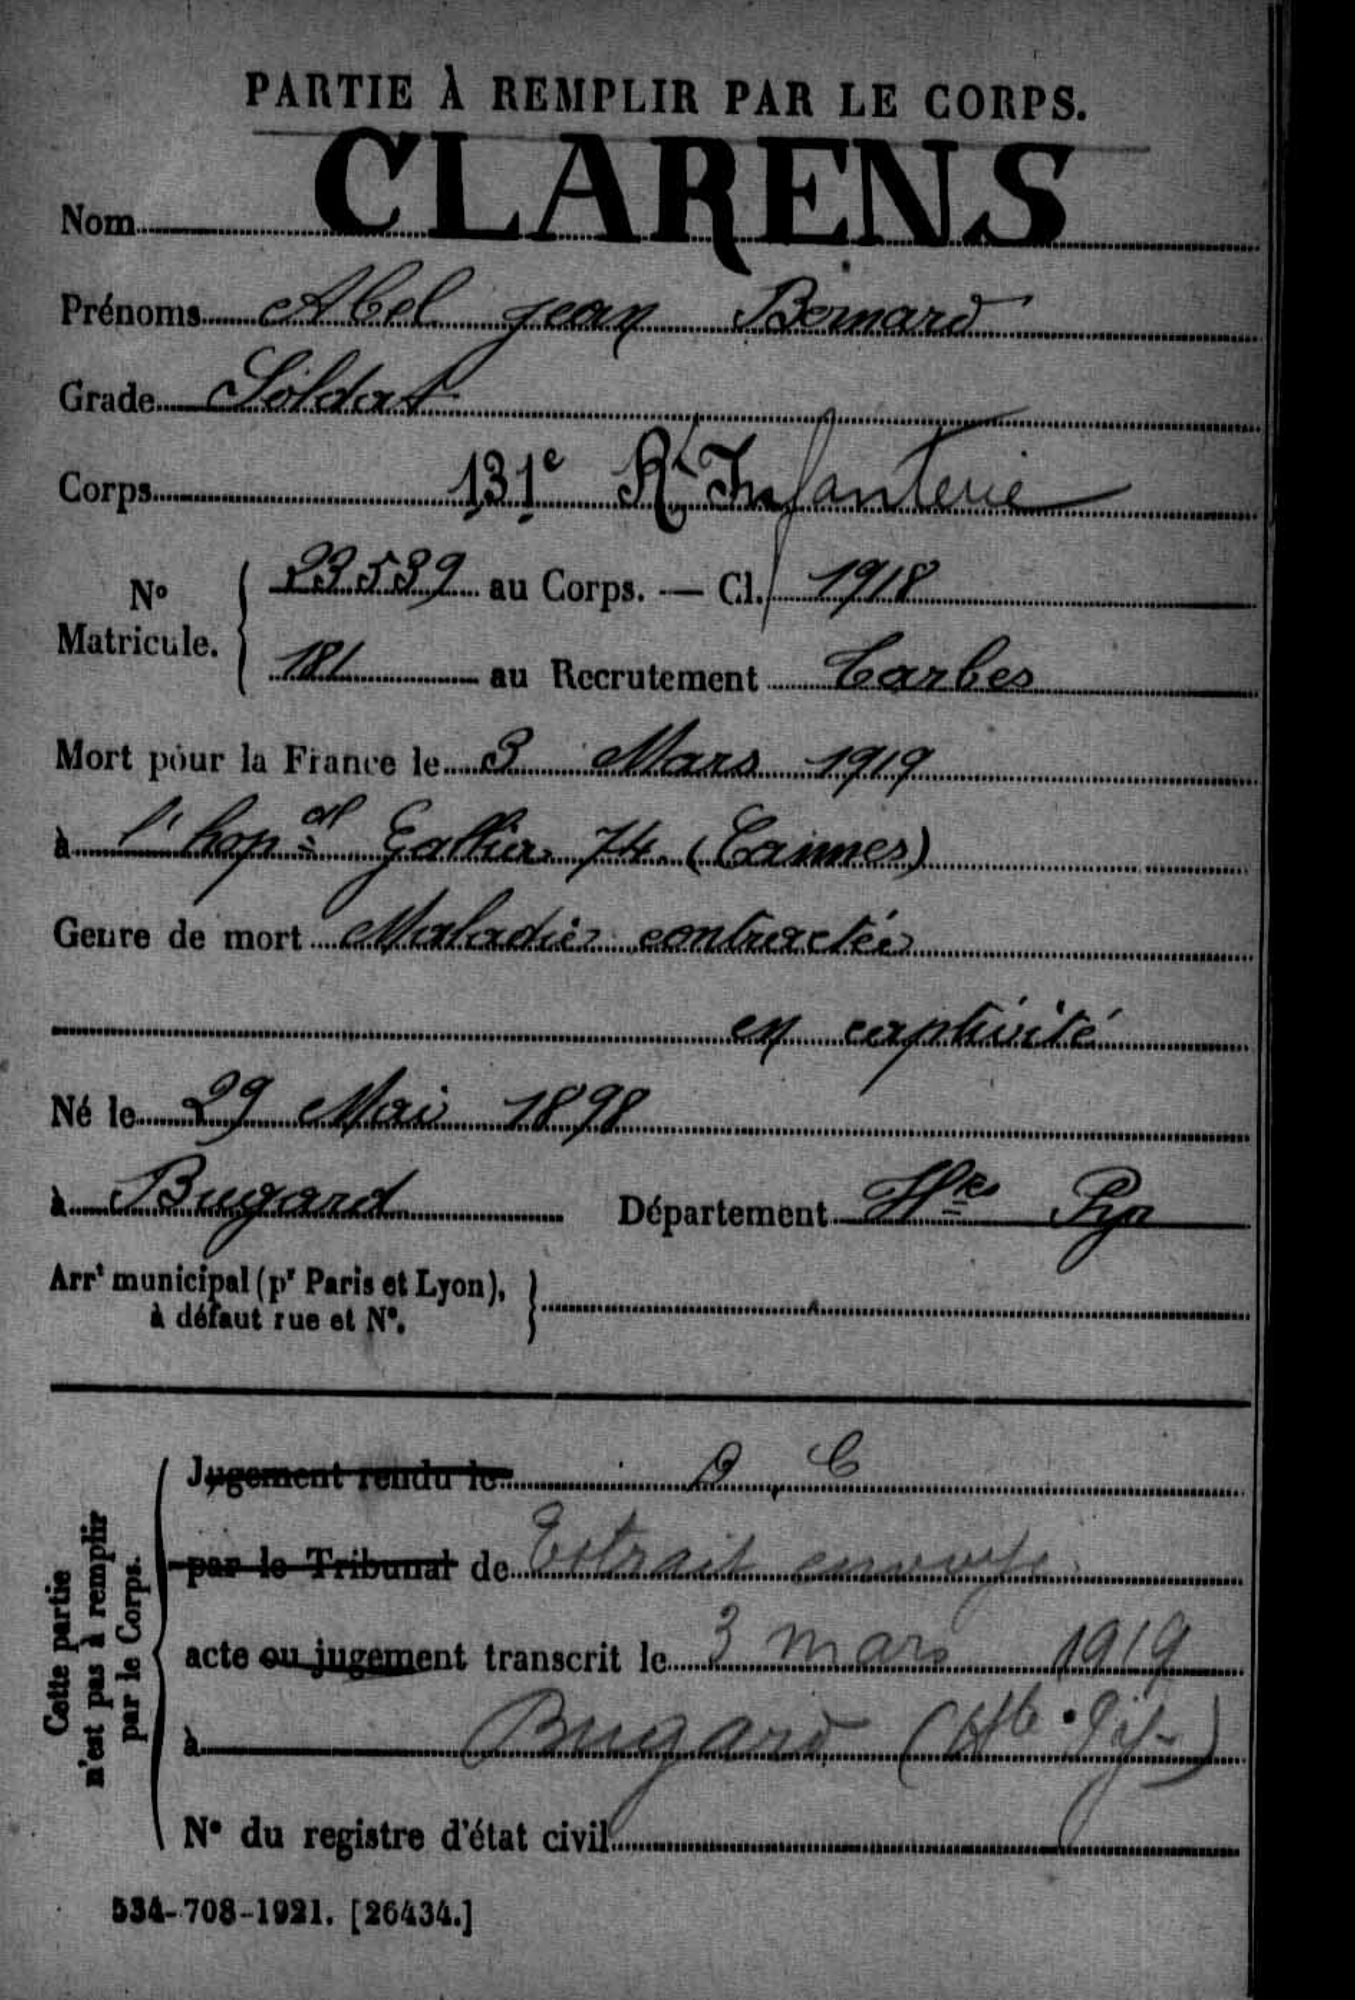 PARTIE À REMPLIR PAR LE CORPS.
Nom CLARENS
Prénoms Abel Jean Bernard
Grade Soldat
Corps 131e Rt Infanterie
No Matricule. 23539 au Corps. — Cl. 1918
181 au Recrutement Tarbes
Mort pour la France le 3 Mars 1919
à l'hopal Gallia 74 (Cannes)
Genre de mort Maladie contractée
en captivité
Né le 29 Mai 1898
à Bugard Département Htes Pyr
Arrt municipal (pr Paris et Lyon),
à défaut rue et No.
Cette partie
n'est pas à remplir
par le Corps.
Jugement rendu le D, C
par le Tribunal de Extrait envoyé
acte ou jugement transcrit le 3 mars 1919
à Bugard (Hte. Py-)
No du registre d'état civil
534-708-1921. [26434.]